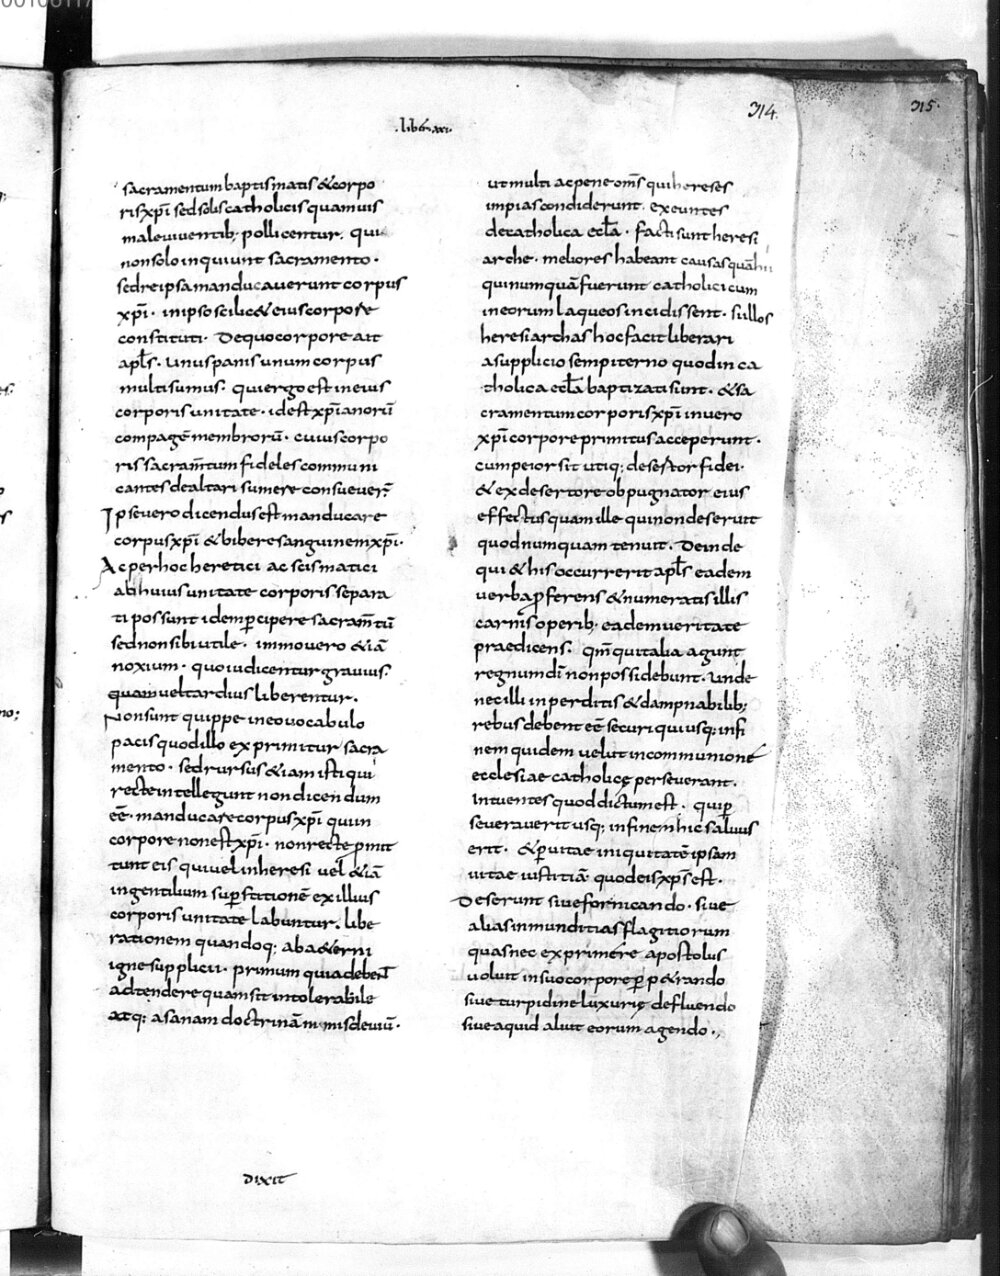 00106117
314
315
.liber xxi.
sacramentum baptismatis & corpo
ris xp̄i sed solis catholicis quamuis
male uiuentib; pollicentur. qui
non solo inquiunt sacramento.
sed re ipsa manducauerunt corpus
xp̄i. in ipso scilic& eius corpore
constituti. De quo corpore ait
apl̄s. unus panis unum corpus
multi sumus. qui ergo est in eius
corporis unitate. id est xp̄ianorū
compagē membrorū. cuius corpo
ris sacram̄tum fideles communi
cantes de altari sumere consueuer̄
Ipse uero dicendus est manducare
corpus xp̄i & bibere sanguinem xp̄i.
Ac per hoc heretici ac scismatici
ab huius unitate corporis separa
ti possunt idem p̱cipere sacram̄tū
sed non sibi utile. immo uero &iā
noxium. quo iudicentur grauius.
quam uel tardius liberentur.
Non sunt quippe in eo uocabulo
pacis quod illo exprimitur sacra
mento. sed rursus &iam isti qui
recte intellegunt non dicendum
eē. manducare corpus xp̄i qui in
corpore non est xp̄i. non recte p̱mit
tunt eis qui uel in heresi uel &iā
in gentilium sup̱stitionē ex illius
corporis unitate labuntur. libe
rationem quandoq; ab a&erni
igne supplicii. primum quia debent
adtendere quam sit intolerabile
atq; a sanam doctrinā nimis deuiū.
ut multi ac pene om̄s qui hereses
impias condiderunt. exeuntes
de catholica eccl̄a. facti sunt heresi
arche. meliores habeant causas quā hii
qui numquā fuerunt catholici cum
in eorum laqueos incidissent. si illos
heresiarchas hoc facit liberari
a supplicio sempiterno quod in ca
tholica eccl̄a baptizati sunt. & sa
cramentum corporis xp̄i in uero
xp̄i corpore primitus acceperunt.
cum peior sit utiq; desertor fidei.
& ex desertore obpugnator eius
effectus quam ille qui non deseruit
quod numquam tenuit. Deinde
qui & his occurrerit apl̄s eadem
uerba p̱ferens & numeratis illis
carnis operib; eadem ueritate
praedicens. qm̄ qui talia agunt
regnum dī non possidebunt. Unde
nec illi in perditis & dampnabilib;
rebus debent eē securi qui usq; in fi
nem quidem uelut in communionē
ecclesiae catholicę perseuerant.
Intuentes quod dictum est. qui p̱
seuerauerit usq; in finem hic saluus
erit. & p̱ uitae iniquitatē ipsam
uitae iustitiā quod eis xp̄s est.
Deserunt siue fornicando. siue
alias inmunditias flagitiorum
quas nec exprimere apostolus
uoluit in suo corpore p̱p&rando
siue turpidine luxurię defluendo
siue aquid aliut eorum agendo.,
dixit